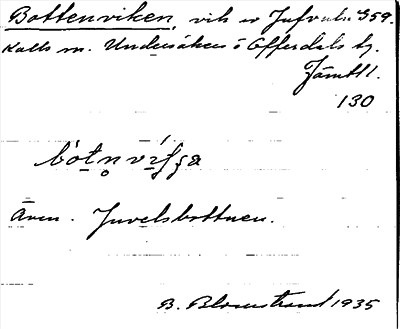 Bottenviken, vik av Jufvuln 359.
Kalls sn. Undersåkers o Offerdals tg.
Jämtl l.
130
Även. Juvelsbottnen.
B. Blomstrand 1935